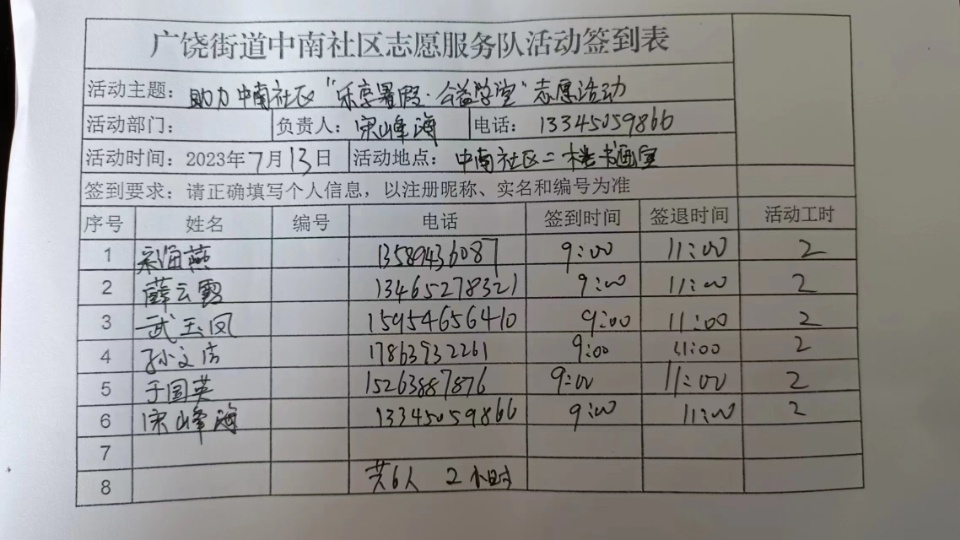 广饶街道中南社区志愿服务队活动签到表
活动主题：助力中南社区“乐享暑假·公益学堂”志愿活动
活动部门： 负责人：宋峰海 电话：13345059866
活动时间：2023年7月13日 活动地点：中南社区二楼书画室
签到要求：请正确填写个人信息，以注册昵称、实名和编号为准
序号 姓名 编号 电话 签到时间 签退时间 活动工时
1 宋海燕 13589436087 9:00 11:00 2
2 薛云霞 13465278321 9:00 11:00 2
3 武玉凤 15954656410 9:00 11:00 2
4 孙文洁 17863932261 9:00 11:00 2
5 于国英 15263887876 9:00 11:00 2
6 宋峰海 13345059866 9:00 11:00 2
7
8 共6人 2小时